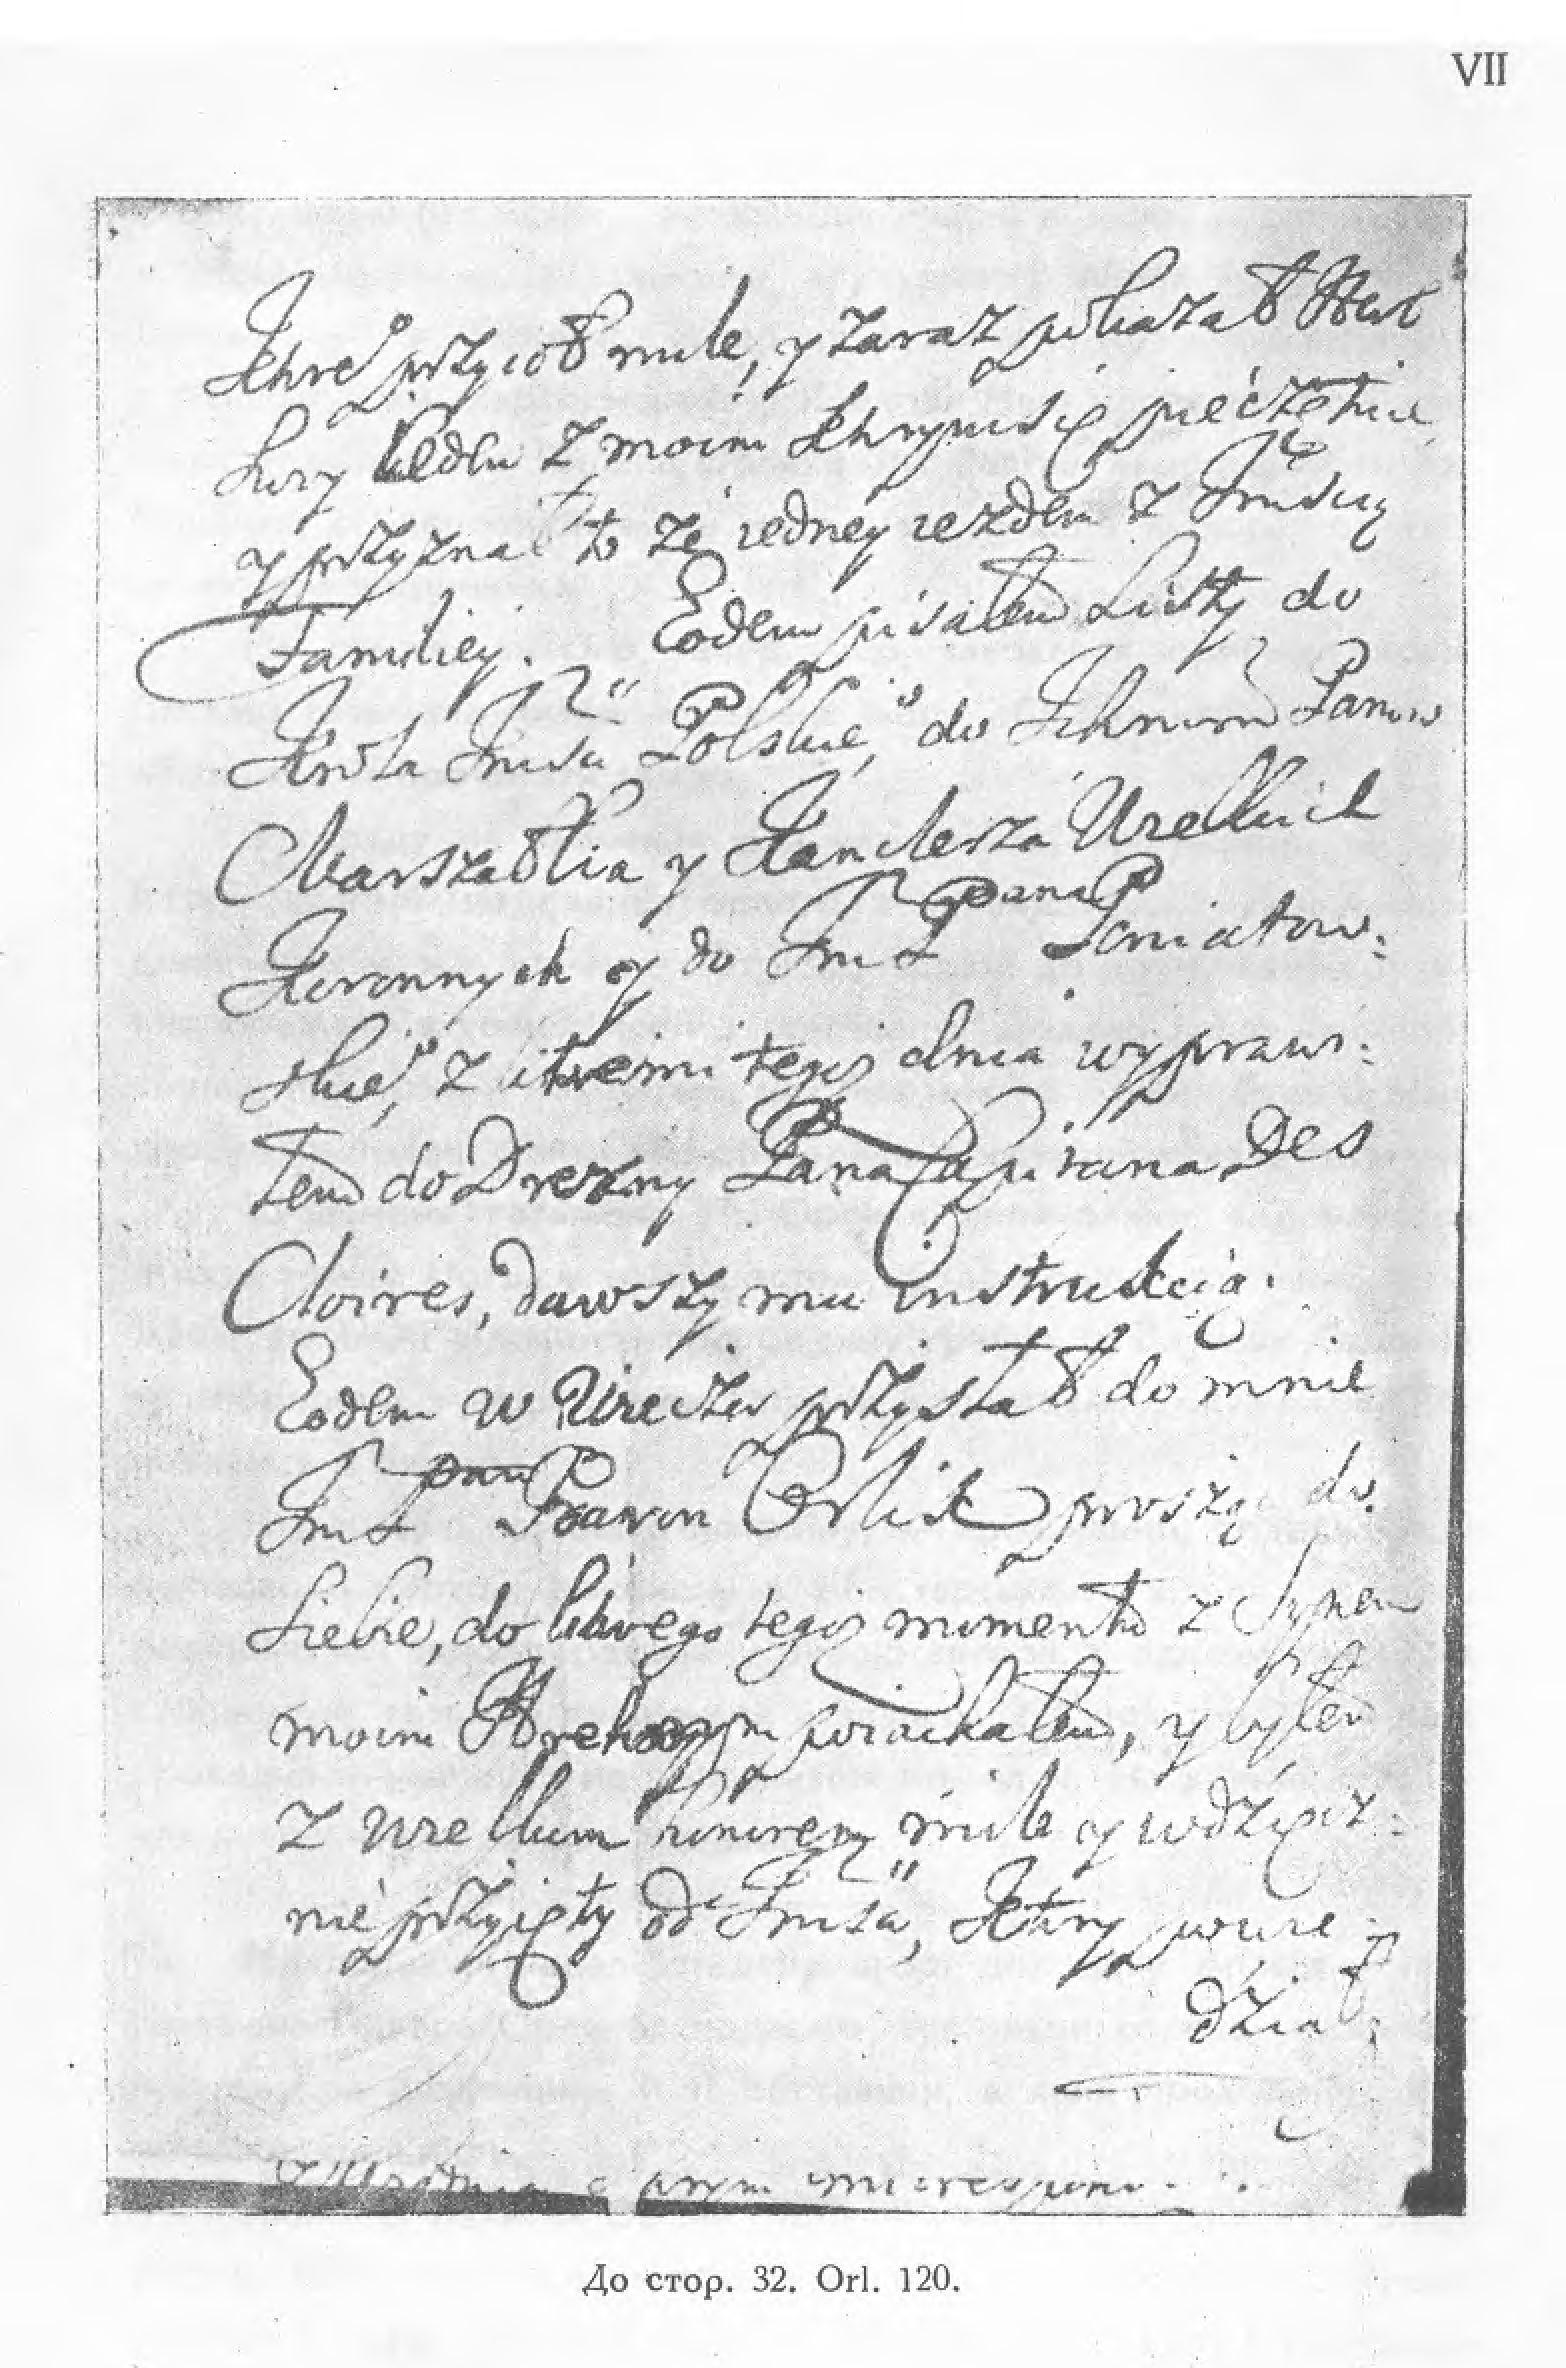 VII
ktore przyioł mile, y zaraz pokazał
zemoim pieczęcie
y przyznał to że iedney iezdem z Jmścią
Familiey. Eodem pisałem Listy do
Krola Jmści Polskie°, do Panow
Marszałka y Kanclerza Wielkich
Koronnych y do Jm Pana Poniatow:
skie°, z ktoremi tegoż dnia wypraw:
łem do Drezny Pana Capitana Des
Cloires, dawszy mu instrukcią.
Eodem w Wieczor przysłał do mnie
Jm Pan Baron Orlik prosząc do
Siebie, do ktorego tegoż momentu z Synem
moim poiachałem, y byłem
z wielkim honorem mile y wdzięcz:
nie przyięty od Jmści, ktory powie
dział
До стор. 32. Orl. 120.